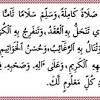 صَلَاةً كَامِلَةً وَسَلِّمْ سَلَامًا تَامًّا
تَنْحَلُّ بِهِ الْعُقَدُ وَتَنْفَرِجُ بِهِ
وَتُنَالُ بِهِ الرَّغَائِبُ وَحُسْنُ
الْكَرِيمِ وَعَلَى آلِهِ وَصَحْبِهِ
كُلِّ مَعْلُومٍ لَكَ